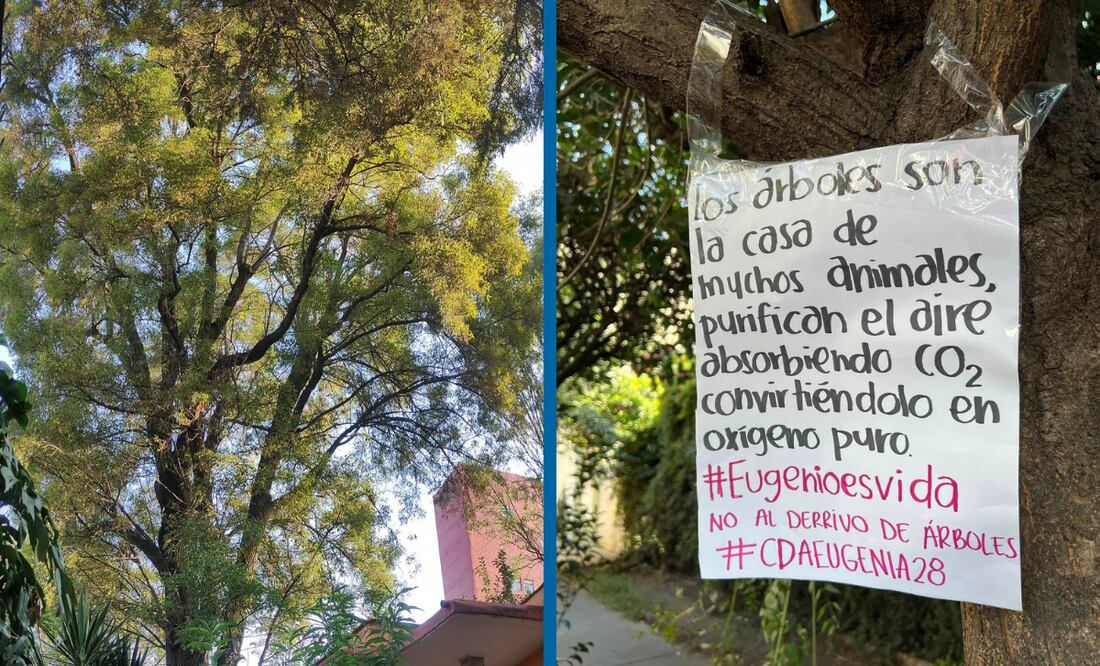 los árboles son
la casa de
muchos animales,
purifican el aire
absorbiendo CO₂
convirtiéndolo en
oxígeno puro.
#Eugenioesvida
NO AL DERRIVO DE ÁRBOLES
#CDAEUGENIA28